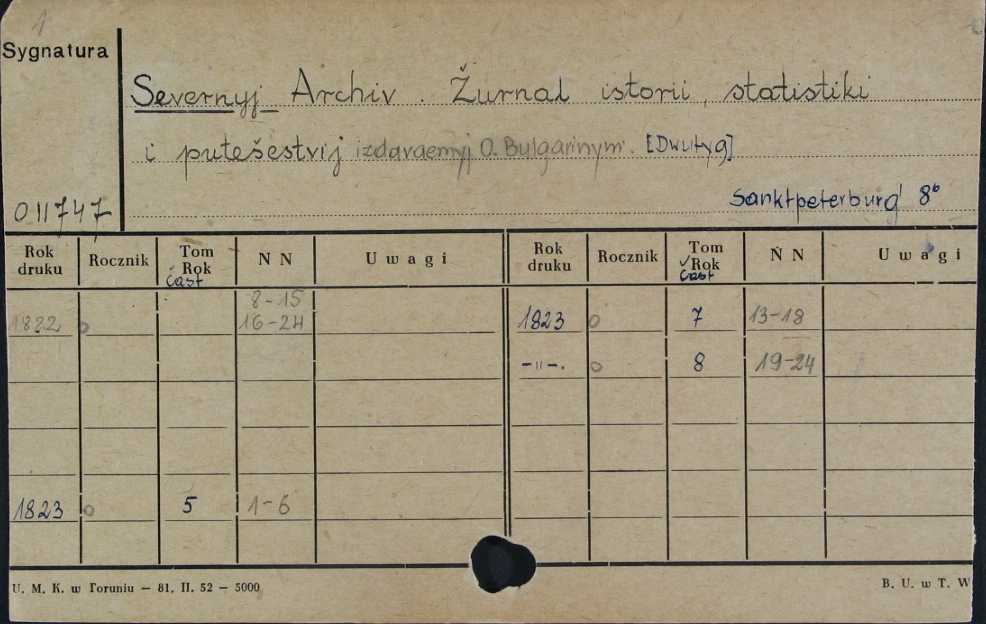 1
Sygnatura
Severnyj Archiv. Žurnal istorii, statistiki
i putešestvij izdavaemyj O. Bulgarinym. [Dwutyg]
Sanktpeterburg 8°
011747
Rok druku Rocznik Tom Rok čast N N Uwagi Rok druku Rocznik Tom Rok čast N N Uwagi
8-15
1822 o 16-24 1823 o 7 13-18
-"-. o 8 19-24
1823 o 5 1-6
U. M. K. w Toruniu — 81. II. 52 — 5000 B. U. w T. W